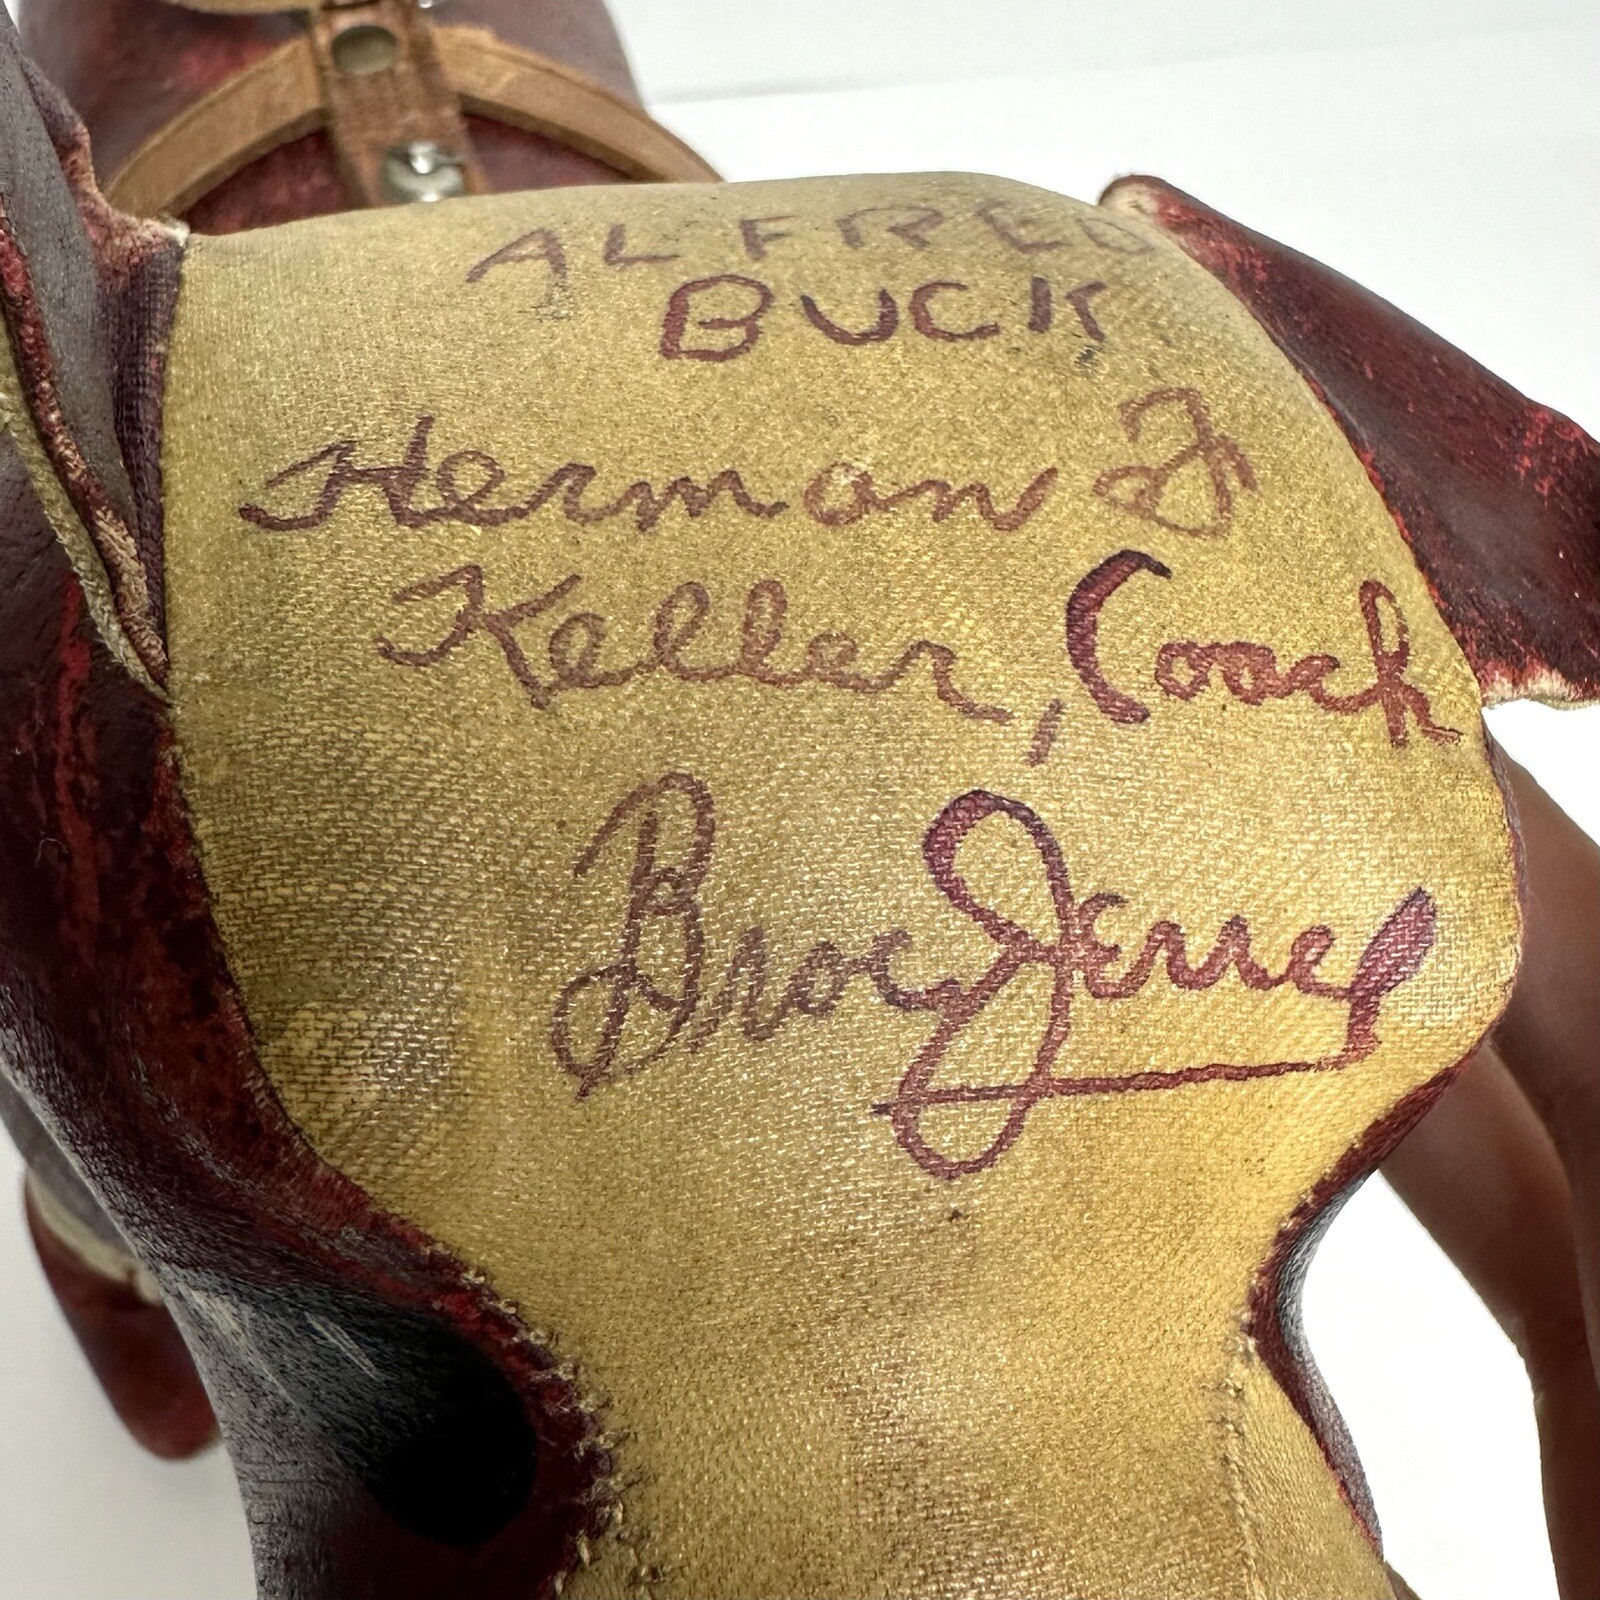 ALFRED
BUCK
Herman J
Keller, Coach
Broc Jerre